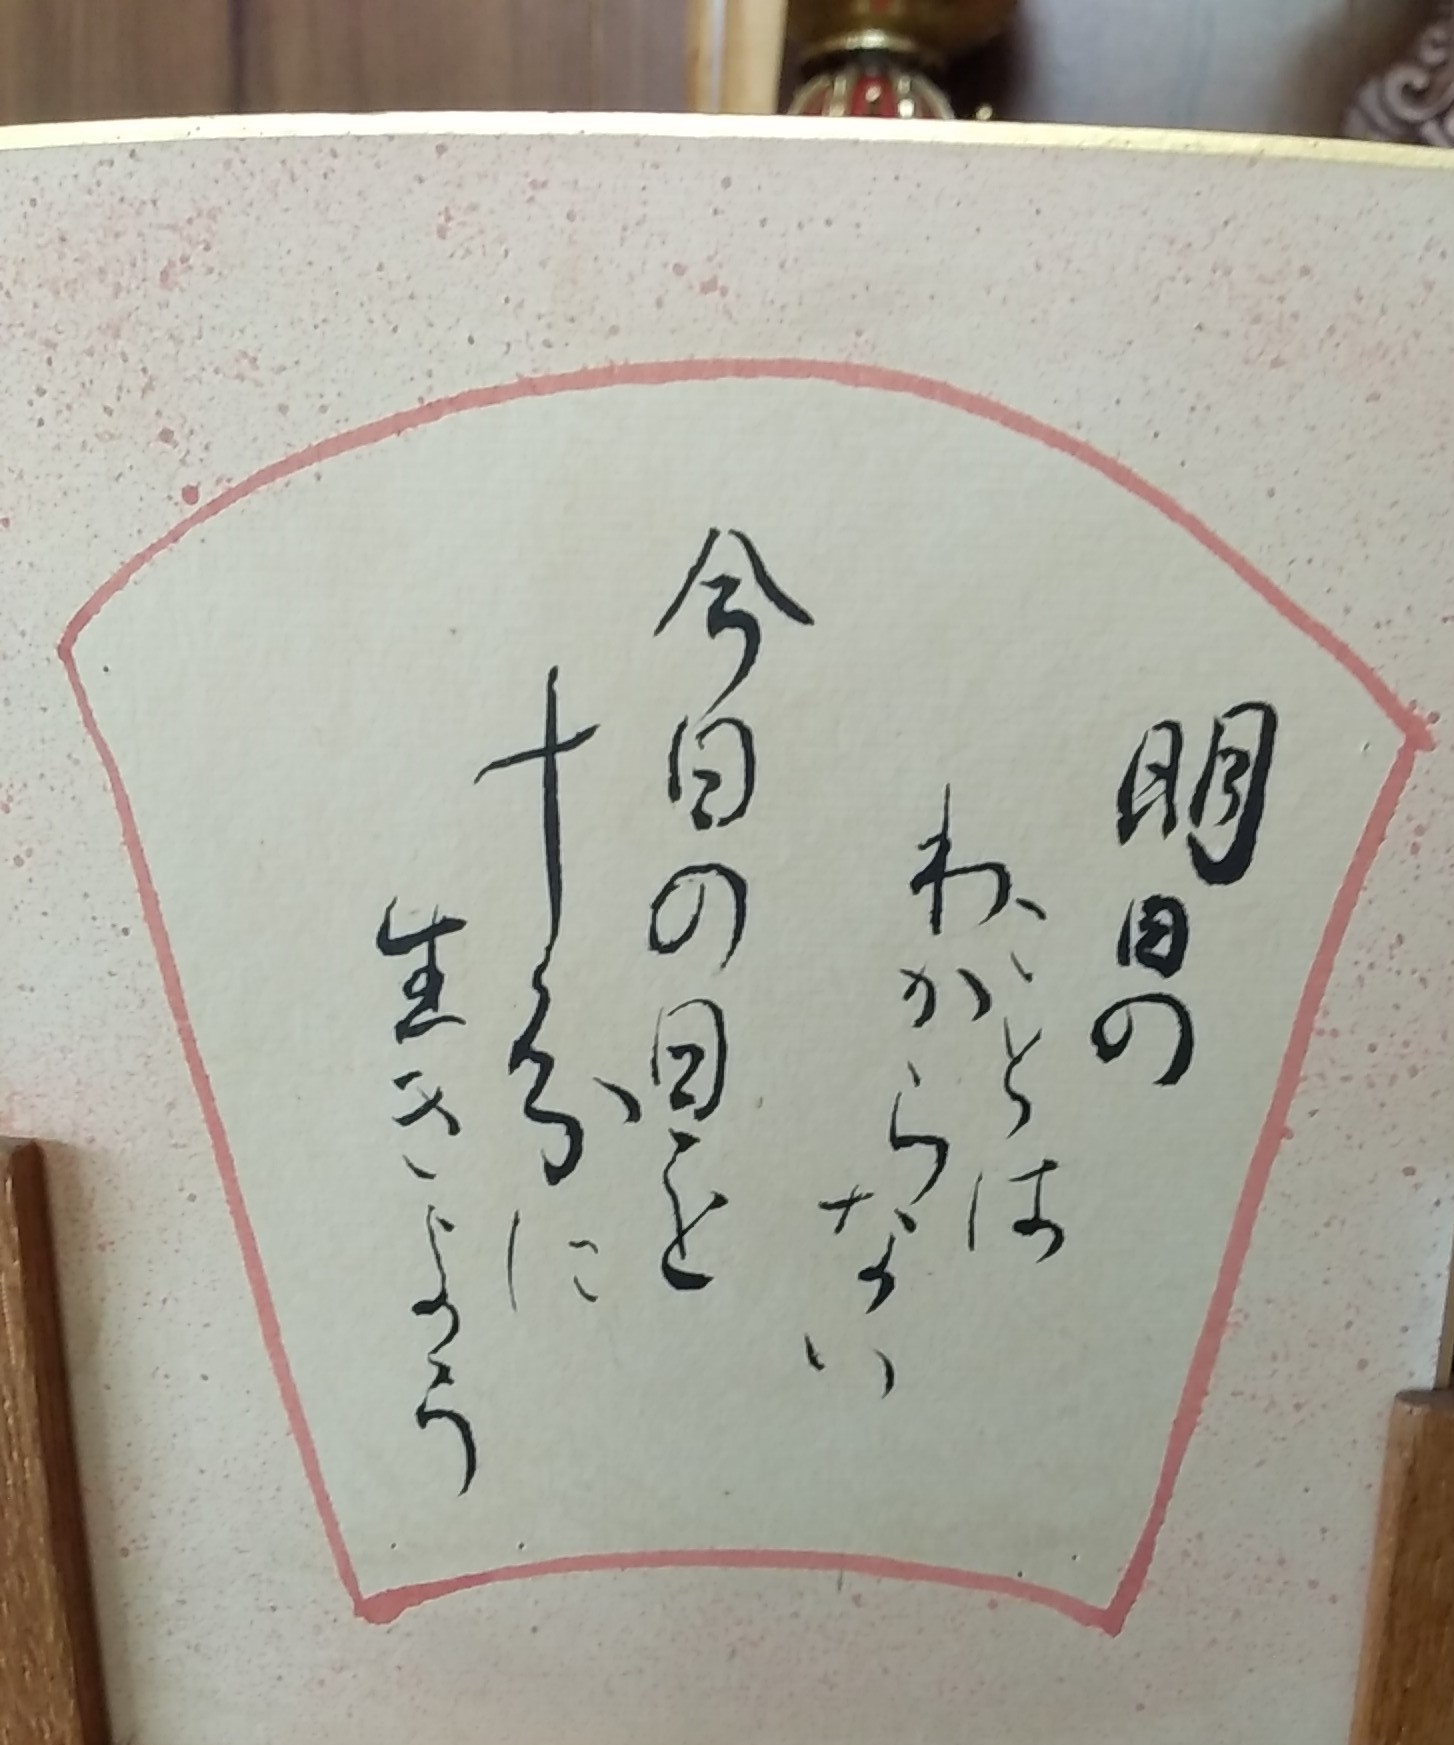 明日の
ことは
わからない
今日の日を
十分に
生きよう